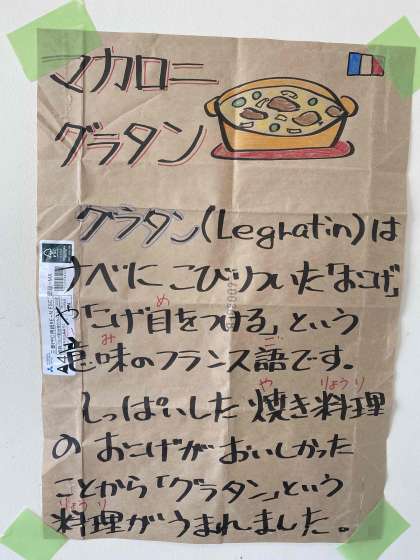 マカロニ
グラタン
グラタン(Legratin)は
なべに こびりついた「おこげ」
め
や「こげ目をつける」という
み ご
意味のフランス語です。
や りょうり
しっぱいした 焼き料理
の おこげが おいしかった
ことから「グラタン」という
りょうり
料理がうまれました。
A4